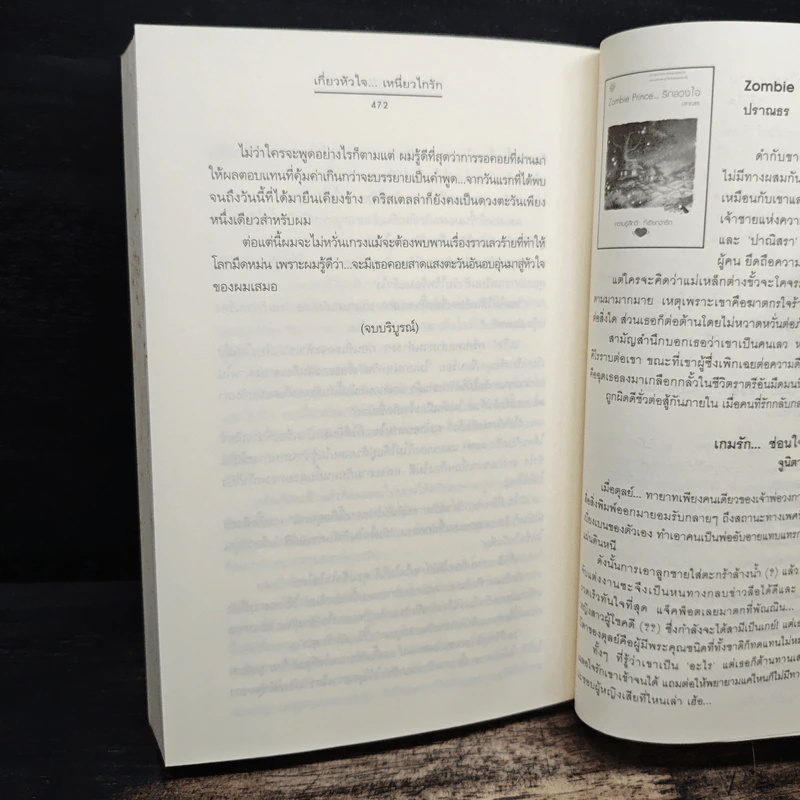 เกี่ยวหัวใจ... เหนี่ยวไกรัก
472
ไม่ว่าใครจะพูดอย่างไรก็ตามแต่ ผมรู้ดีที่สุดว่าการรอคอยที่ผ่านมา
ให้ผลตอบแทนที่คุ้มค่าเกินกว่าจะบรรยายเป็นคำพูด...จากวันแรกที่ได้พบ
จนถึงวันนี้ที่ได้มายืนเคียงข้าง คริสเตลล่าก็ยังคงเป็นดวงตะวันเพียง
หนึ่งเดียวสำหรับผม
ต่อแต่นี้ผมจะไม่หวั่นเกรงแม้จะต้องพบพานเรื่องราวเลวร้ายที่ทำให้
โลกมืดหม่น เพราะผมรู้ดีว่า...จะมีเธอคอยสาดแสงตะวันอันอบอุ่นมาสู่หัวใจ
ของผมเสมอ
(จบบริบูรณ์)
Zombie Prince... รักลวงใจ
Zombie
ปราณธร
ดำกับขา
ไม่มีทางผสมกัน
เหมือนกับเขาแล
เจ้าชายแห่งความ
และ 'ปาณิสรา'
ผู้คน ยึดถือความ
แต่ใครจะคิดว่าแม่เหล็กต่างขั้วจะโคจร
ตามมามากมาย เหตุเพราะเขาคือฆาตกรใจร้า
ต่อสิ่งใด ส่วนเธอก็ต่อต้านโดยไม่หวาดหวั่นต่อภั
สามัญสำนึกบอกเธอว่าเขาเป็นคนเลว ห
ศิโรราบต่อเขา ขณะที่เขาผู้ซึ่งเพิกเฉยต่อความดี
คือฉุดเธอลงมาเกลือกกลั้วในชีวิตราตรีอันมืดมนน
ถูกผิดดีชั่วต่อสู้กันภายใน เมื่อคนที่รักกลับกล
เกมรัก... ซ่อนใจ
ฐนิตา
เมื่อตุลย์... ทายาทเพียงคนเดียวของเจ้าพ่อวงกา
สื่อสิ่งพิมพ์ออกมายอมรับกลายๆ ถึงสถานะทางเพศ
เบี่ยงเบนของตัวเอง ทำเอาคนเป็นพ่ออับอายแทบแทรก
แผ่นดินหนี
ดังนั้นการเอาลูกชายใส่ตะกร้าล้างน้ำ (?) แล้ว
จับแต่งงานซะจึงเป็นหนทางกลบข่าวลือได้ดีและ
รวดเร็วทันใจที่สุด แจ็คพ็อตเลยมาตกที่พัณณิน...
หญิงสาวผู้โชคดี (??) ซึ่งกำลังจะได้สามีเป็นเกย์! แต่
ของตุลย์คือผู้มีพระคุณชนิดที่ทั้งชาติก็ทดแทนไม่หม
ทั้งๆ ที่รู้ว่าเขาเป็น 'อะไร' แต่เธอก็ต้านทานเส
รักเขาเข้าจนได้ แถมต่อให้พยายามแค่ไหนก็ไม่มีทา
ชอบผู้หญิงเสียที่ไหนเล่า เฮ้อ...